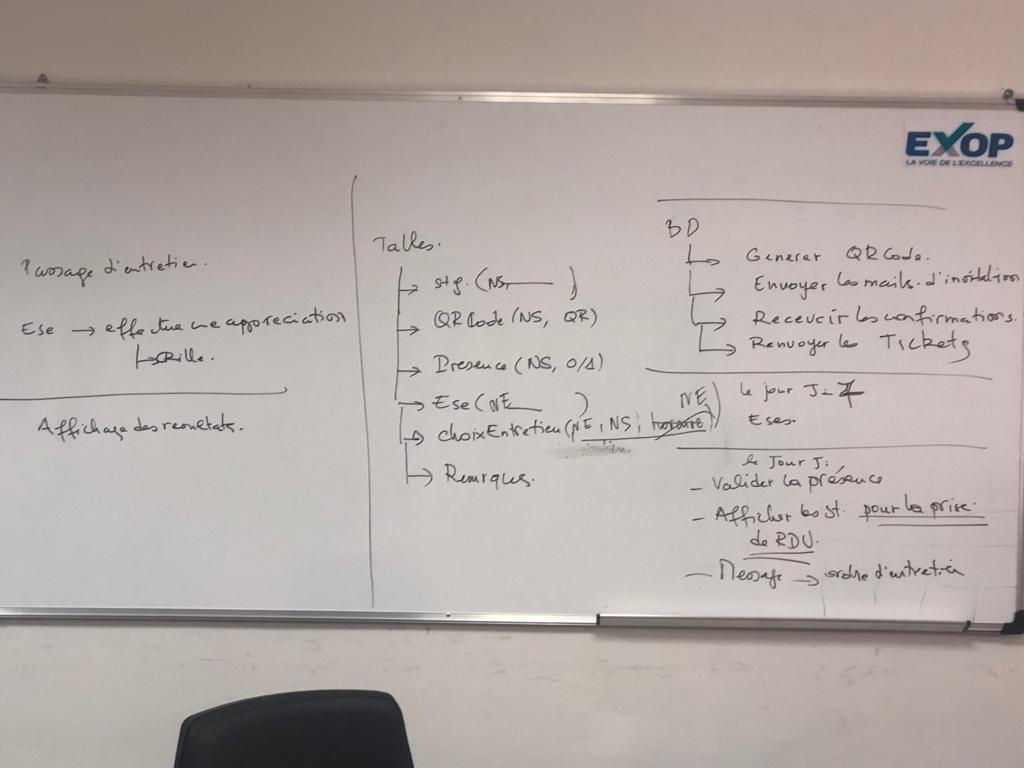 Passage d'entretien.
Ese → effectue une appreciation
↳ Grille.
Affichage des resultats.
Tables.
→ stg. (NS, ___ )
→ QR Code (NS, QR)
→ Presence (NS, 0/1)
→ Ese (NE ___ )
→ choixEntretien (NE, NS,
NE)
→ Remrques.
EXOP
LA VOIE DE L'EXCELLENCE
BD
→ Generer QR Code.
→ Envoyer les mails d'invitation
→ Recevoir les confirmations.
→ Renvoyer les Tickets
le jour J-
Eses.
le Jour J:
- Valider la présence
- Afficher les st. pour la prise
de RDV.
- Message → ordre d'entretien